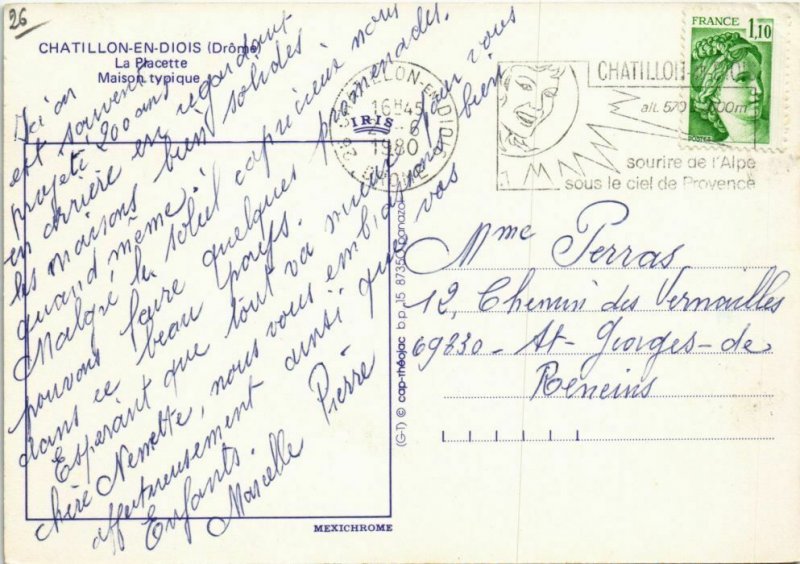 26
CHATILLON-EN-DIOIS (Drôme)
La Placette
Maison typique
Ici on
est souvent
projeté 200 ans
en arrière en regardant
les maisons bien solides
quand même !
Malgré le soleil capricieux nous
pouvons faire quelques promenades
dans ce beau pays.
Espérant que tout va mieux pour vous
chère Nenette, nous vous embrassons bien
affectueusement ainsi que vos
Enfants.
Marcelle Pierre
IRIS
MEXICHROME
(G-T) © cap-théojac b.p. 15 87350 panazol
CHATILLON-EN-DIOIS
16H45
1980
DROME
CHATILLON
alt. 570
sourire de l'Alpe
sous le ciel de Provence
FRANCE
1,10
POSTES
Mme Perras
12, Chemin des Vernailles
69830 - St-Georges-de
Reneins